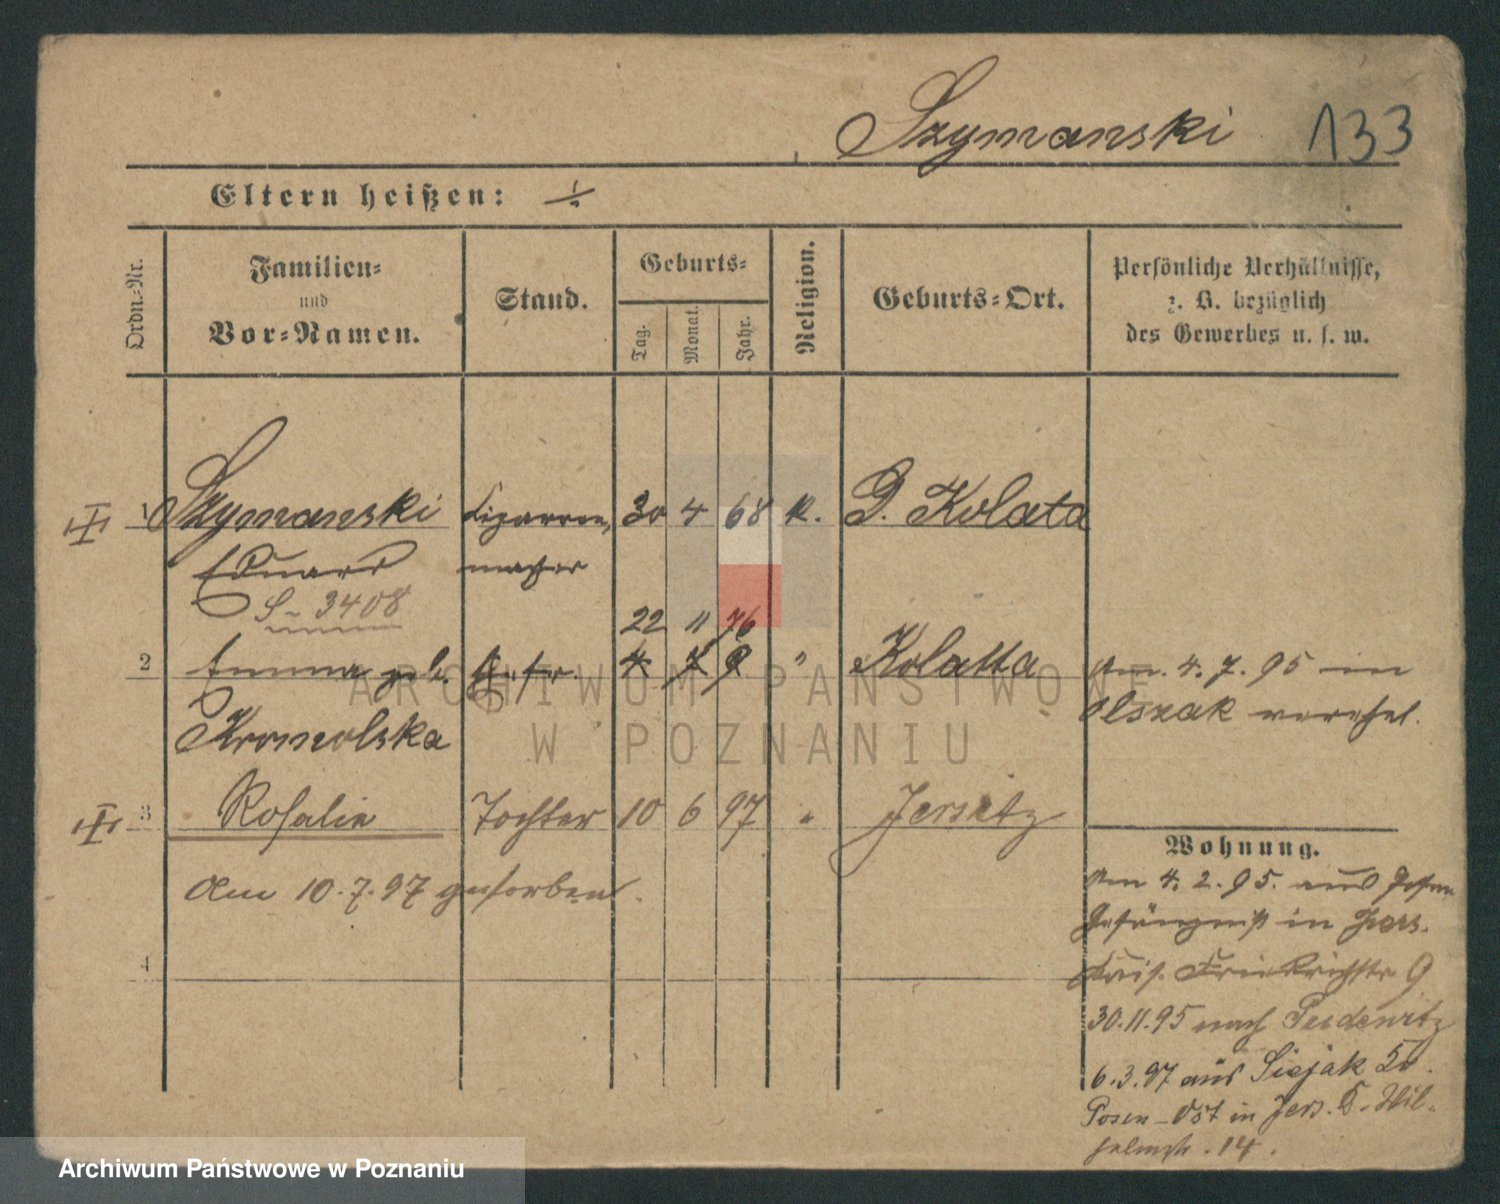 Szymanski 133
Eltern heißen: ./.
Ordn.-Nr.
Familien-
und
Vor-Namen.
Stand.
Geburts-
Tag.
Monat.
Jahr.
Religion.
Geburts-Ort.
Persönliche Verhältnisse,
z. B. bezüglich
des Gewerbes u. s. w.
1 Szymanski Cigarren- 30 4 68 k. G. Kolata
Eduard macher
S- 3408
22 11 76
2 Emma geb. Ehefr. 4 7 9 " Kolatta Am 4.7.95 in
Olszak verehel.
Kromolska
3 Rosalie Tochter 10 6 97 " Jersitz
Wohnung.
Am 10.7.97 gestorben.
Am 4.2.95. aus Posen
Gefängniß in Jers.
Kais. Friedrichstr 9
4
30.11.95 nach Pudewitz
6.3.97 aus Siejak Kr.
Posen-Ost in Jers. K. Wil-
helmstr. 14.
ARCHIWUM PAŃSTWOWE
W POZNANIU
Archiwum Państwowe w Poznaniu